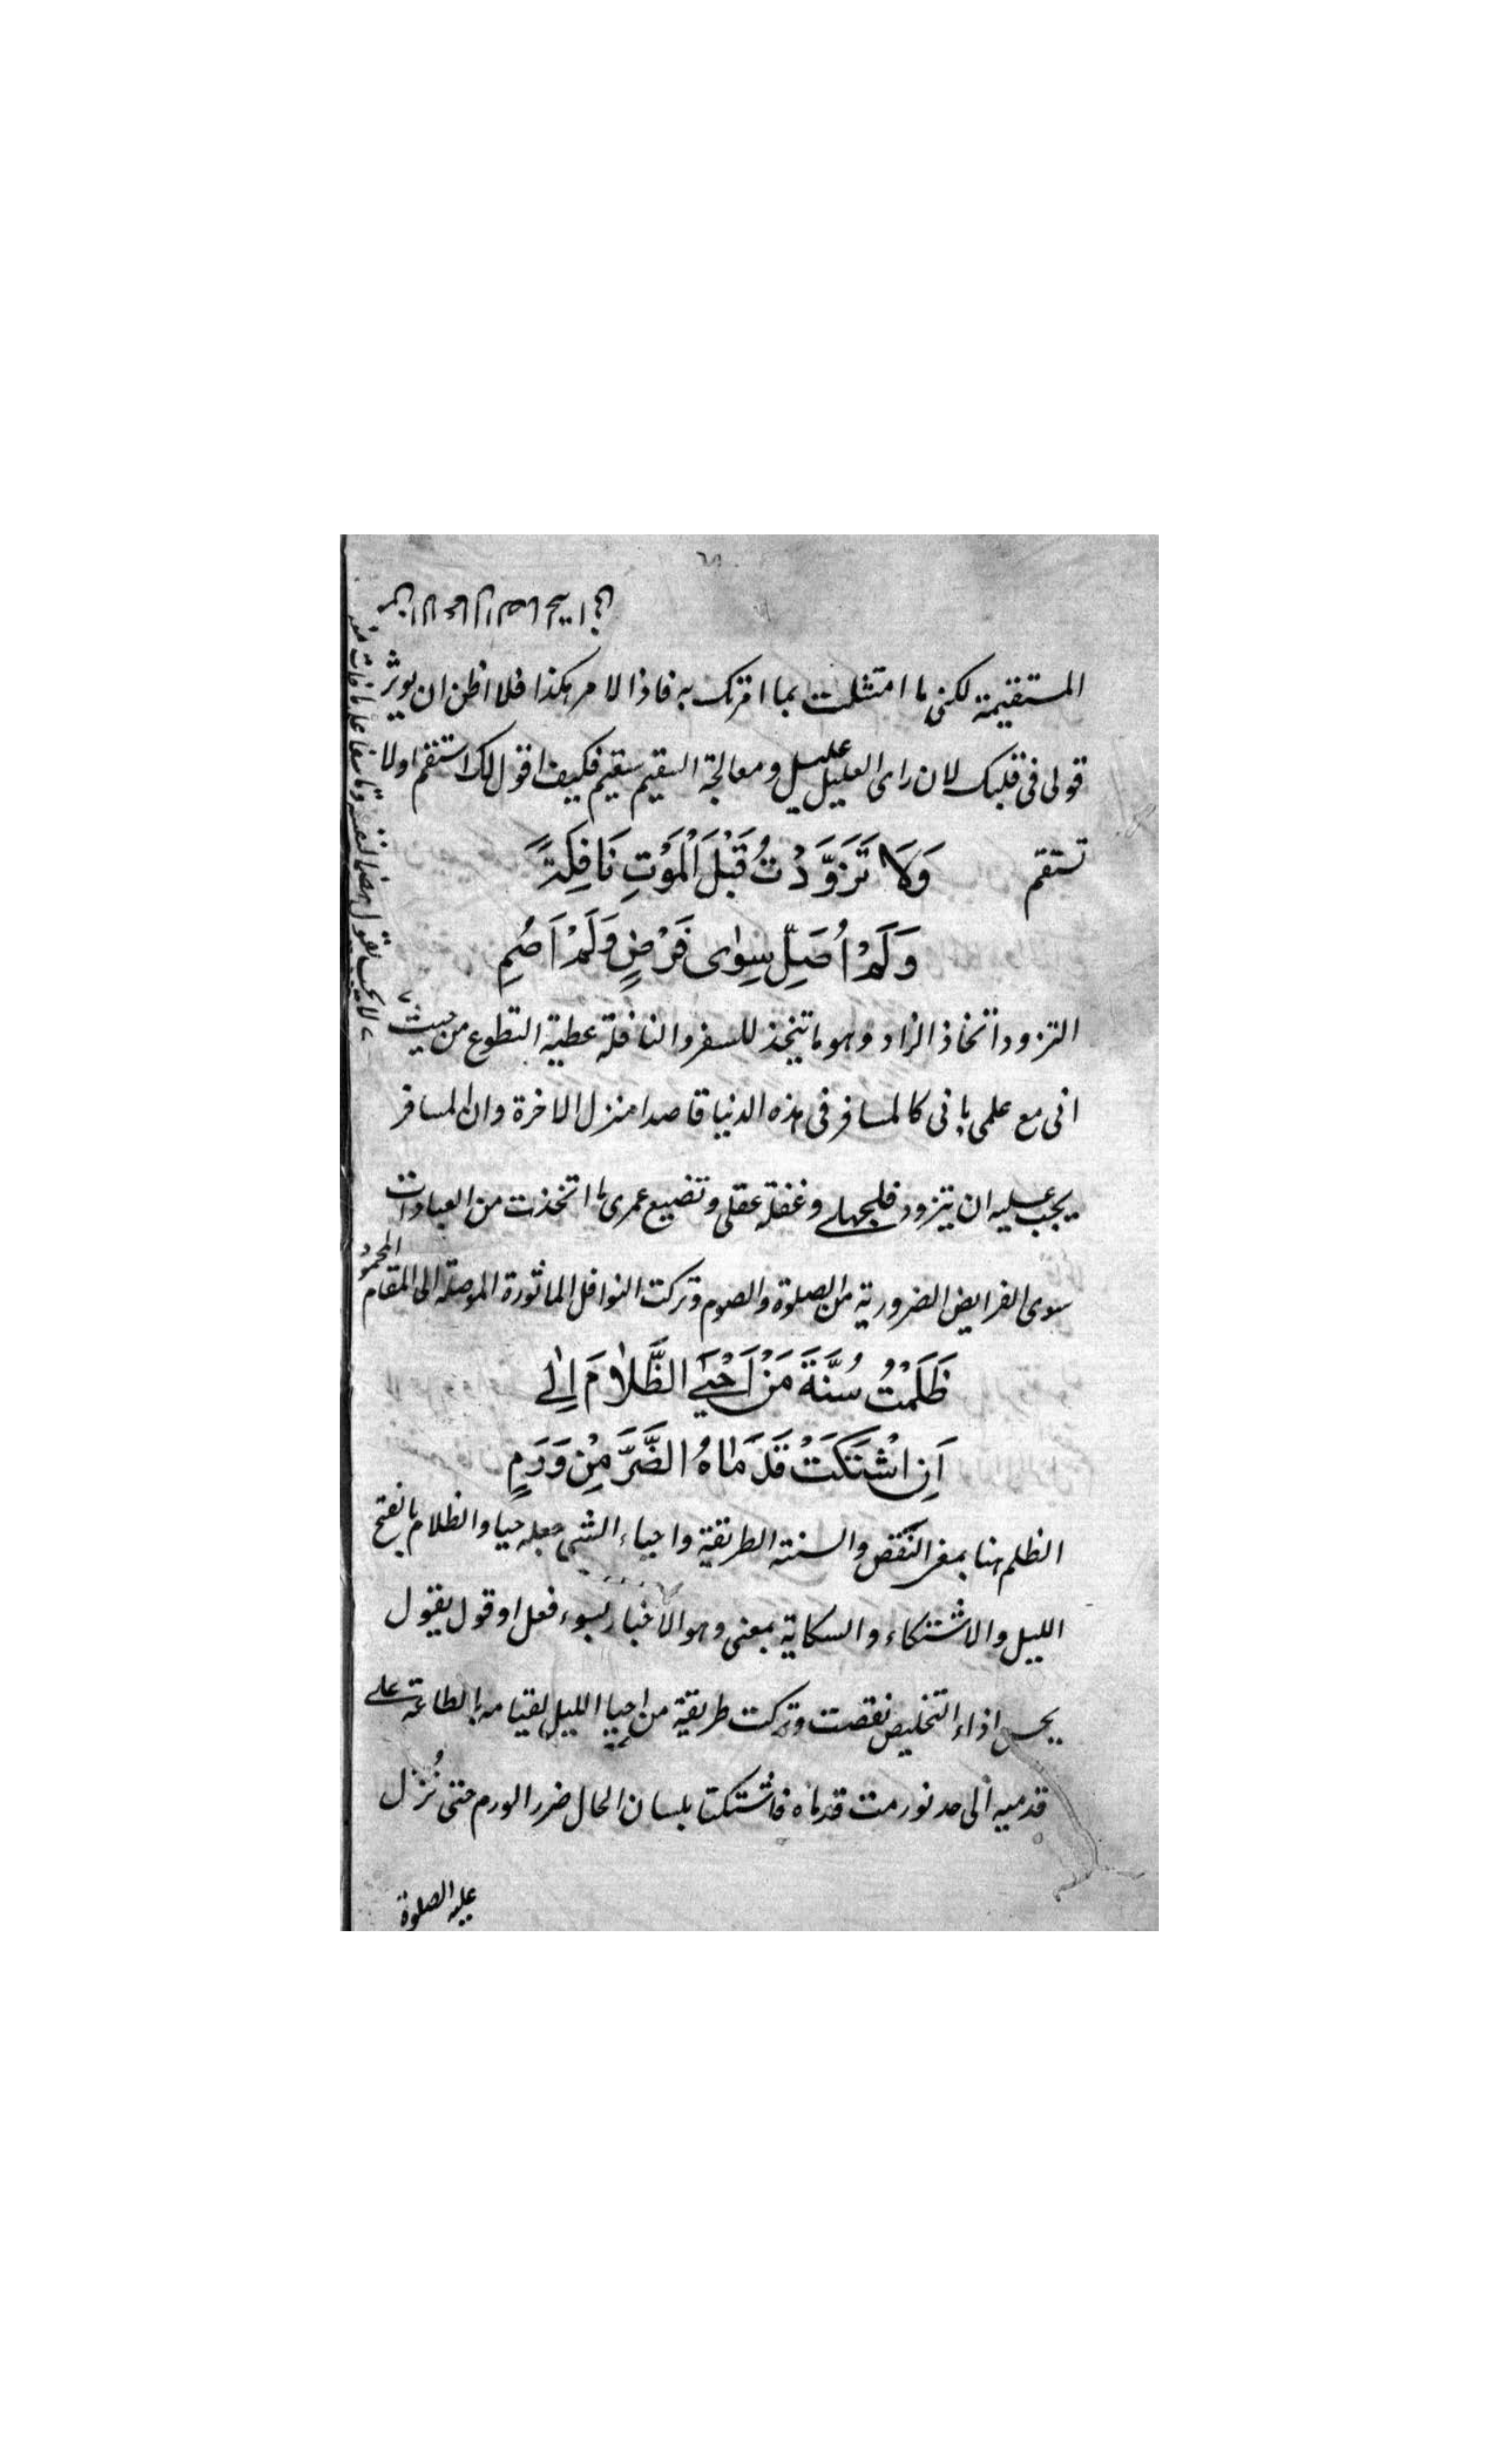 المستقيمة لكنى ما امتثلت بما امرتك به فاذا الامر هكذا فلا اظن ان يوثر
قولى فى قلبك لان راى العليل عليل ومعالجة السقيم سقيم فكيف اقول لك استقم اولا
تستقم وَلَا تَزَوَّدْتُ قَبْلَ الْمَوْتِ نَافِلَةً
وَلَمْ اُصَلِّ سِوٰى فَرْضٍ وَلَمْ اَصُمِ
التزود اتخاذ الزاد وهو ما يتخذ للسفر والنافلة عطية التطوع من حيث
انى مع علمى بانى كالمسافر فى هذه الدنيا قاصدا منزل الاخرة وان المسافر
يجب عليه ان يتزود فلجهلے وغفلة عقلى وتضييع عمرى ما اتخذت من العبادات
سوى الفرايض الضرورية من الصلوة والصوم وتركت النوافل الماثورة الموصلة الى المقام المحمود
ظَلَمْتُ سُنَّةَ مَنْ اَحْيَى الظَّلَامَ اِلٰى
اَنِ اشْتَكَتْ قَدَمَاهُ الضُّرَّ مِنْ وَرَمِ
الظلم هنا بمعنى النقص والسنة الطريقة واحياء الشى جعله حيا والظلام بالفتح
الليل والاشتكاء والسكاية بمعنى وهو الاخبار بسوء فعل او قول يقول
اذاء التخليص نقصت وتركت طريقة من احيا الليل لقيامه بالطاعة على
قدميه الى حد تورمت قدماه فاشتكتا بلسان الحال ضرر الورم حتى نُزل
عليه الصلوة